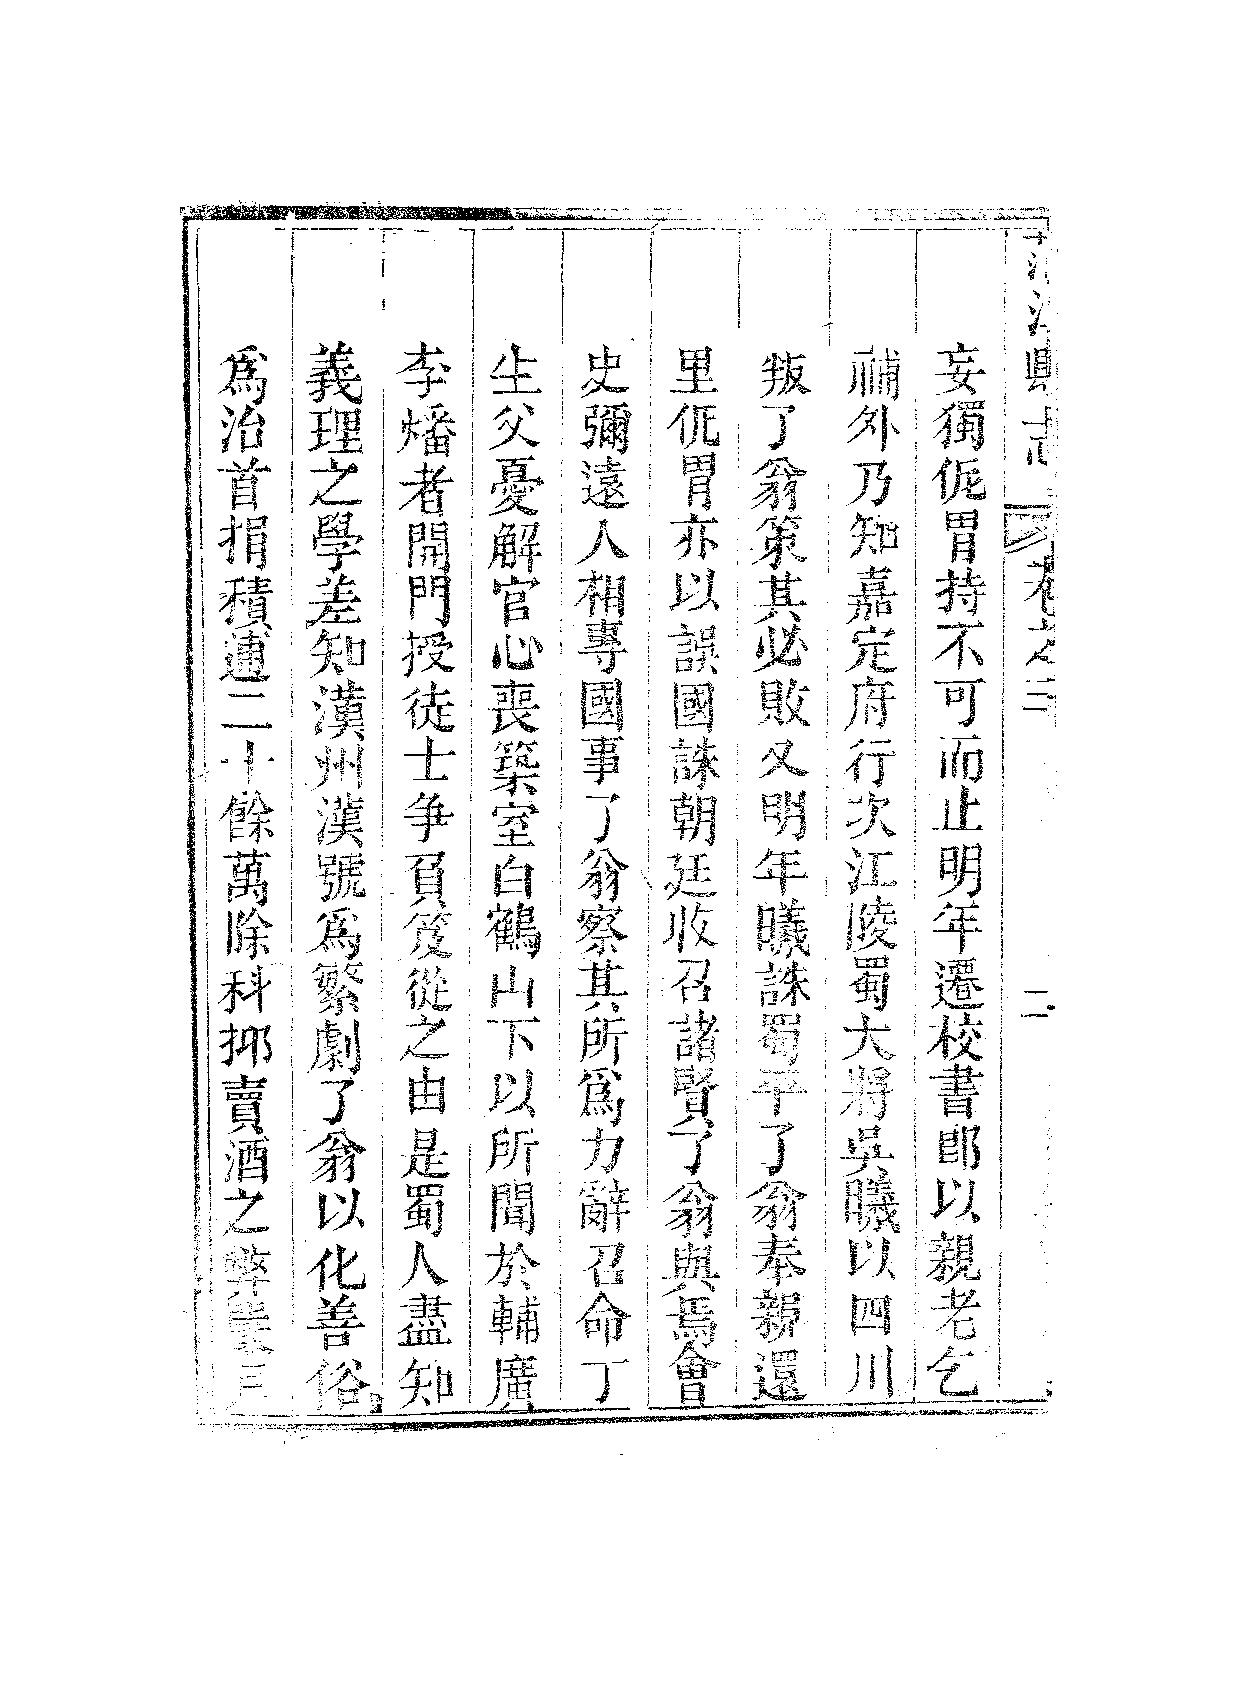 縣志 卷之三 二
妄獨侂胄持不可而止明年遷校書郎以親老乞
補外乃知嘉定府行次江陵蜀大將吳曦以四川
叛了翁策其必敗又明年曦誅蜀平了翁奉親還
里侂胄亦以誤國誅朝廷收召諸賢了翁與焉會
史彌遠入相專國事了翁察其所爲力辭召命丁
生父憂解官心喪築室白鶴山下以所聞於輔廣
李燔者開門授徒士争負笈從之由是蜀人盡知
義理之學差知漢州漢號爲繁劇了翁以化善俗
爲治首捐積逋二十餘萬除科抑賣酒之弊嚴